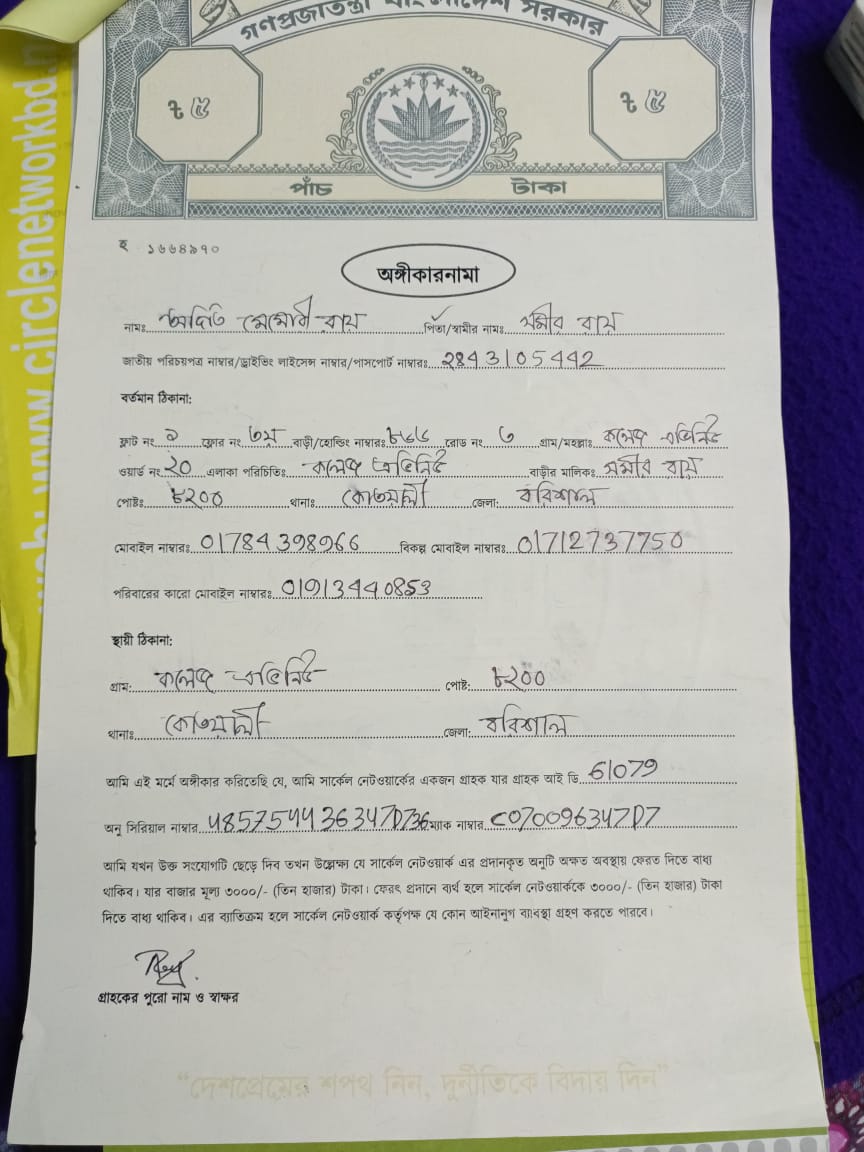 গণপ্রজাতন্ত্রী বাংলাদেশ সরকার
৳ ৫ ৳ ৫
পাঁচ টাকা
হ ১৬৬৪৯৭০
অঙ্গীকারনামা
নামঃ অদিতি মেমোরী রায় পিতা/স্বামীর নামঃ সমীর রায়
জাতীয় পরিচয়পত্র নাম্বার/ড্রাইভিং লাইসেন্স নাম্বার/পাসপোর্ট নাম্বারঃ 2843105442
বর্তমান ঠিকানা:
ফ্লাট নং ১ ফ্লোর নং ৩য় বাড়ী/হোল্ডিং নাম্বারঃ ৮৬৬ রোড নং ৩ গ্রাম/মহল্লাঃ কলেজ এভিনিউ
ওয়ার্ড নং ২০ এলাকা পরিচিতিঃ কলেজ এভিনিউ বাড়ীর মালিকঃ সমীর রায়
পোষ্টঃ ৮২০০ থানাঃ কোতয়ালী জেলা: বরিশাল
মোবাইল নাম্বারঃ 01784398966 বিকল্প মোবাইল নাম্বারঃ 01712737750
পরিবারের কারো মোবাইল নাম্বারঃ 01913440853
স্থায়ী ঠিকানা:
গ্রাম: কলেজ এভিনিউ পোষ্ট: ৮২০০
থানাঃ কোতয়ালী জেলা: বরিশাল
আমি এই মর্মে অঙ্গীকার করিতেছি যে, আমি সার্কেল নেটওয়ার্কের একজন গ্রাহক যার গ্রাহক আই ডি 61079
অনু সিরিয়াল নাম্বার 485754436347D736 ম্যাক নাম্বার C070096347D7
আমি যখন উক্ত সংযোগটি ছেড়ে দিব তখন উল্লেক্ষ্য যে সার্কেল নেটওয়ার্ক এর প্রদানকৃত অনুটি অক্ষত অবস্থায় ফেরত দিতে বাধ্য
থাকিব। যার বাজার মূল্য ৩০০০/- (তিন হাজার) টাকা। ফেরৎ প্রদানে ব্যর্থ হলে সার্কেল নেটওয়ার্ককে ৩০০০/- (তিন হাজার) টাকা
দিতে বাধ্য থাকিব। এর ব্যতিক্রম হলে সার্কেল নেটওয়ার্ক কর্তৃপক্ষ যে কোন আইনানুগ ব্যবস্থা গ্রহণ করতে পারবে।
গ্রাহকের পুরো নাম ও স্বাক্ষর
“দেশপ্রেমের শপথ নিন, দুর্নীতিকে বিদায় দিন”
www.circlenetworkbd.n